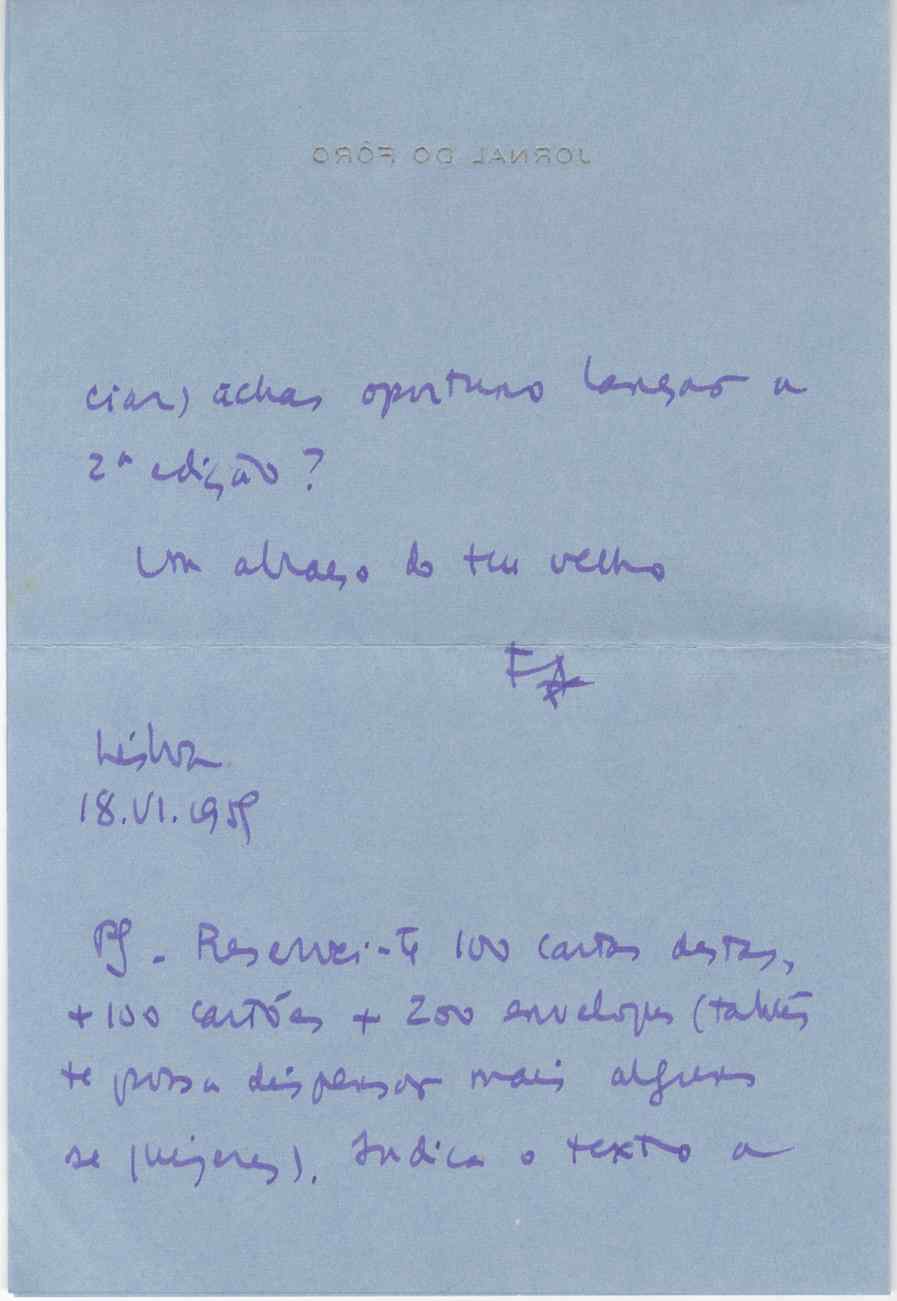 JORNAL DO FÔRO
ciar) achas oportuno lançar a
2ª edição?
Um abraço do teu velho
FA
Lisboa
18.VI.1959
PS. Reservei-te 100 cartas destas,
+100 cartões + 200 envelopes (talvês
te possa dispensar mais alguns
se quiseres). Indica o texto a